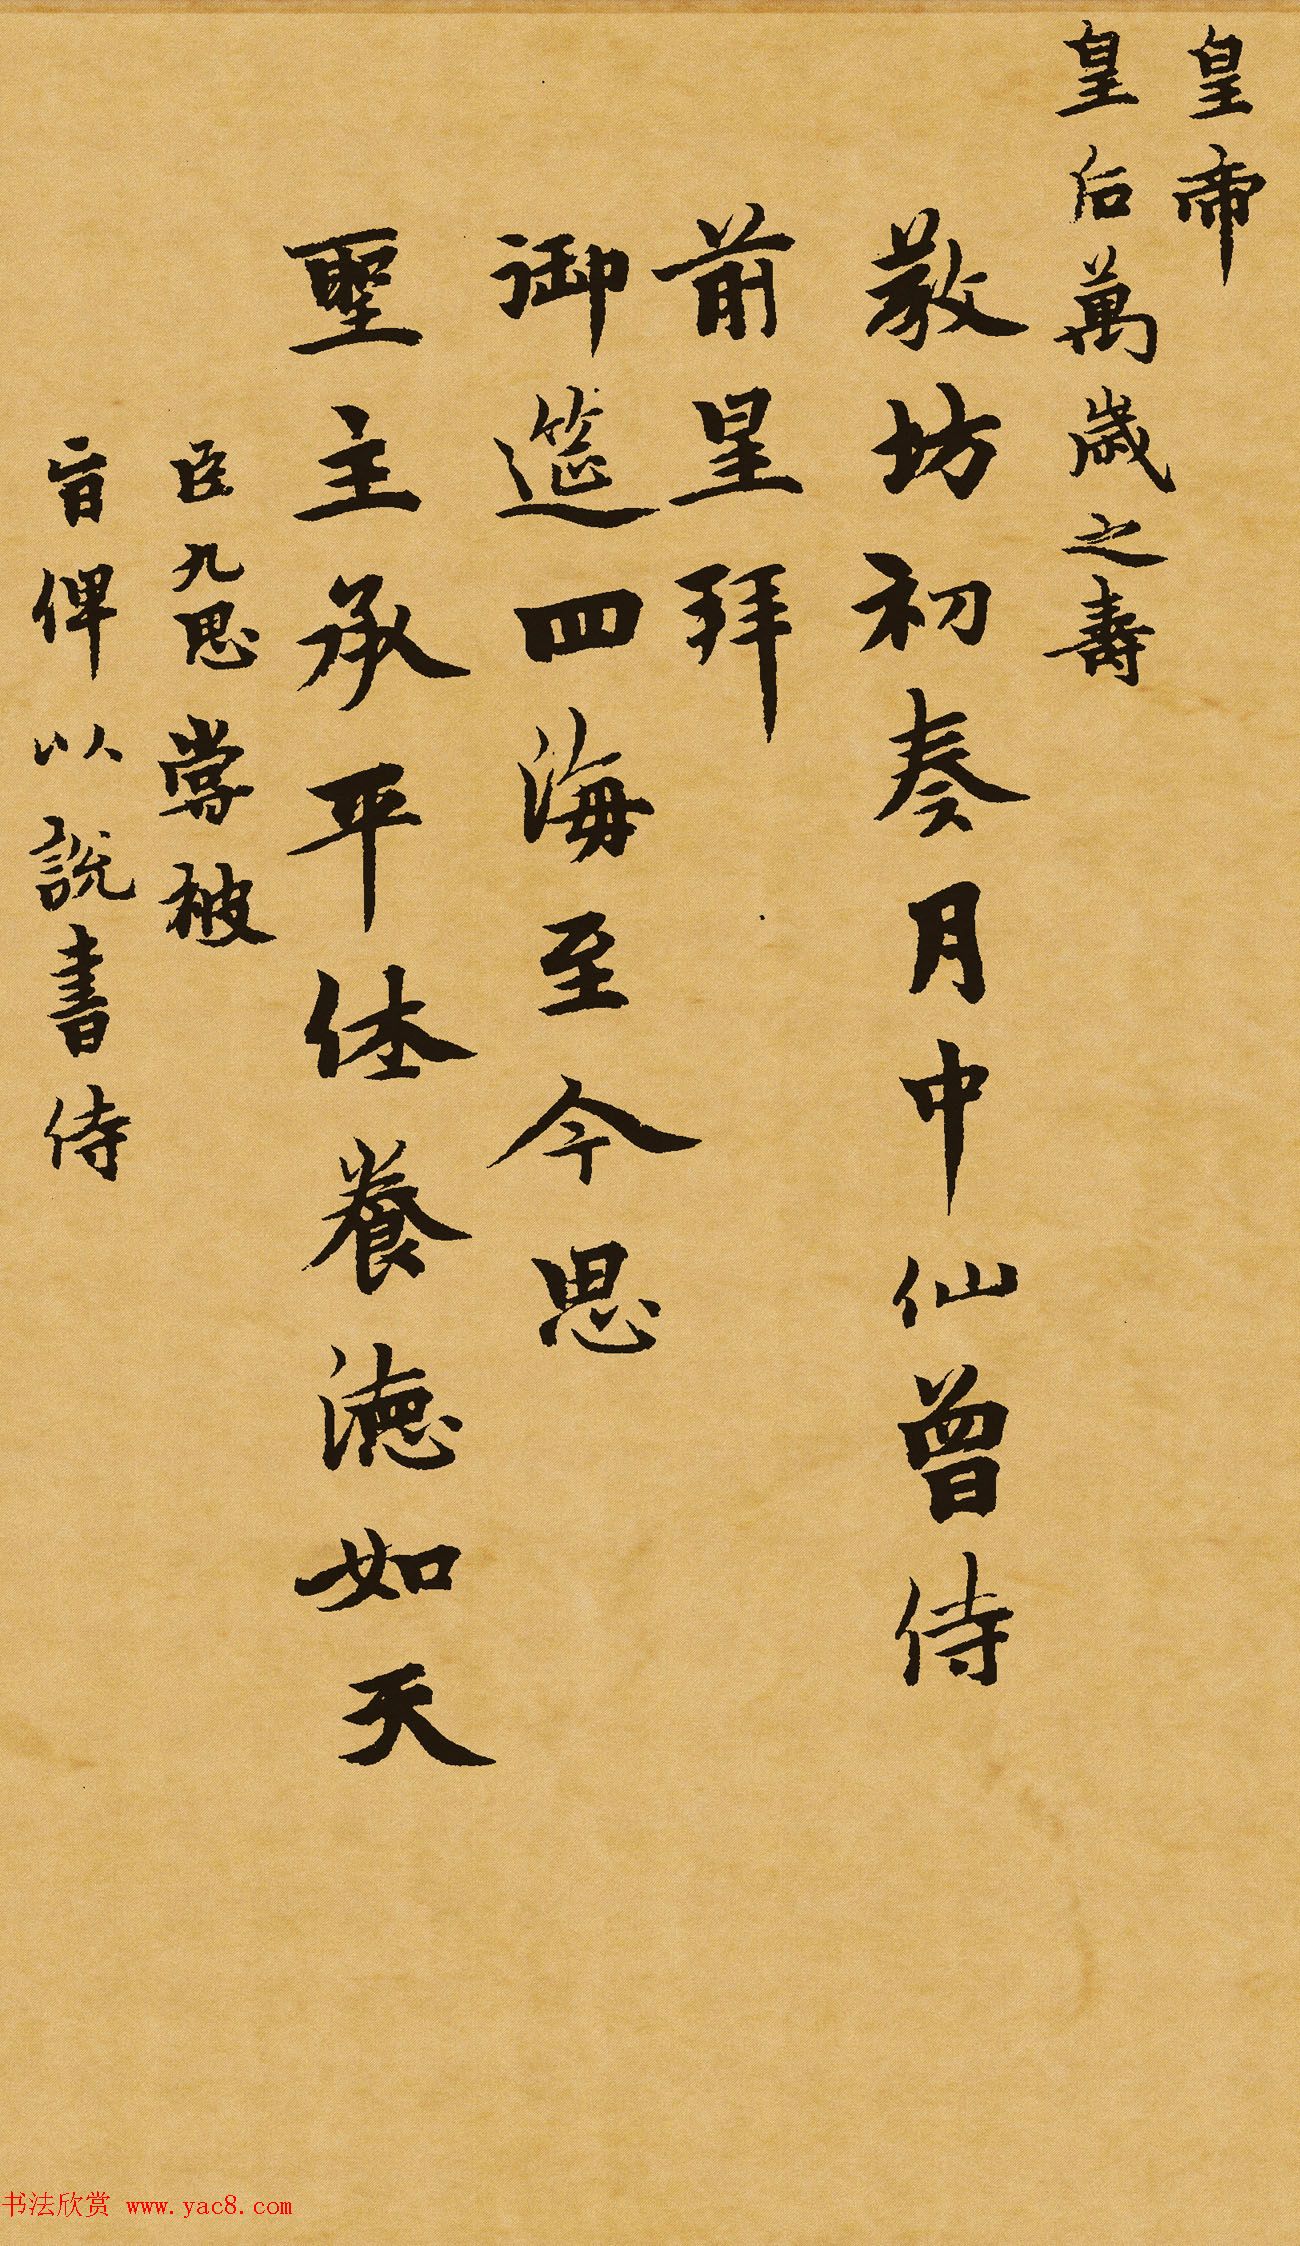 皇帝
皇后萬歲之壽
教坊初奏月中仙曾侍
前星拜
御筵四海至今思
聖主承平休養德如天
臣九思嘗被
旨俾以說書侍
书法欣赏 www.yac8.com